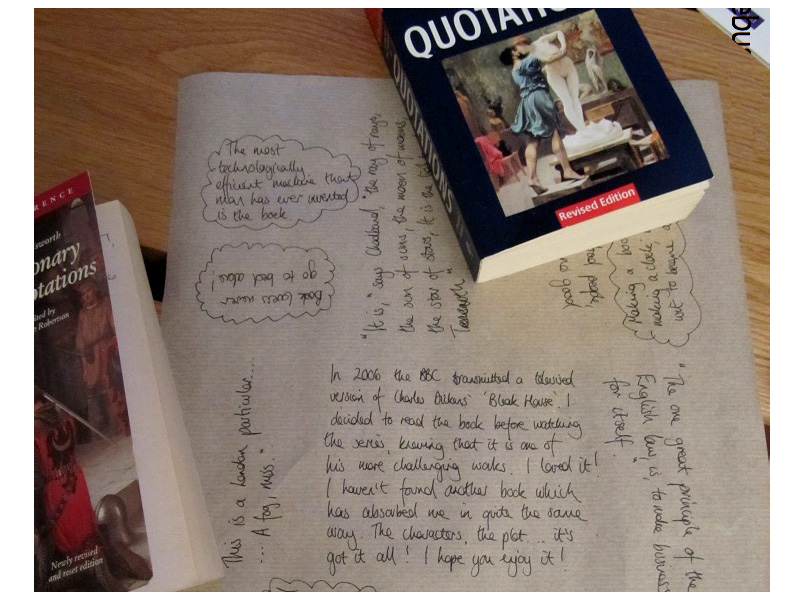 QUOTATIO
QUOTATIONS
Revised Edition
ERENCE
sworth
onary
otations
ited by
Robertson
Newly revised
and reset edition
The most
technologically
efficient machine that
man has ever invented
is the book
Book lovers never
go to bed alone!
"It is," says Chadband, "the ray of rays,
the sun of suns, the moon of moons,
the star of stars, it is the
Terewth"
no good
Making a boo
making a clock
wit to become a
In 2006 the BBC transmitted a televised
version of Charles Dickens' 'Bleak House'. I
decided to read the book before watching
the series, knowing that it is one of
his more challenging works. I loved it!
I haven't found another book which
has absorbed me in quite the same
way. The characters, the plot... it's
got it all! I hope you enjoy it!
This is a London particular....
.... A fog, miss."
"The one great principle of the
English law, is, to make business
for itself."